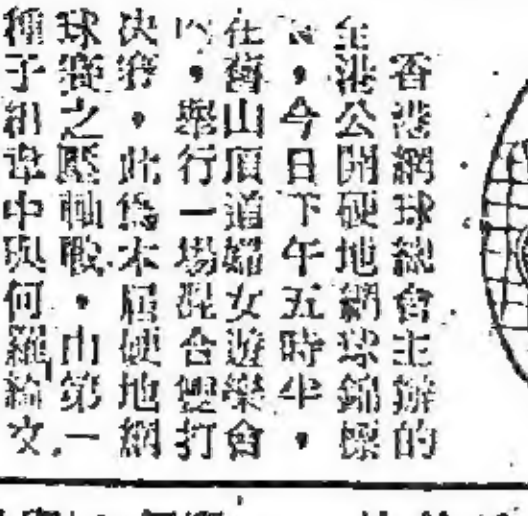 香港網球總會主辦的
全港公開硬地網球錦標
，今日下午五時半，
在舊山頂道婦女遊樂會
，舉行一場混合雙打
決賽，此為本屆硬地網
球賽之壓軸戰，由第一
種子組韋中與何羅綺文